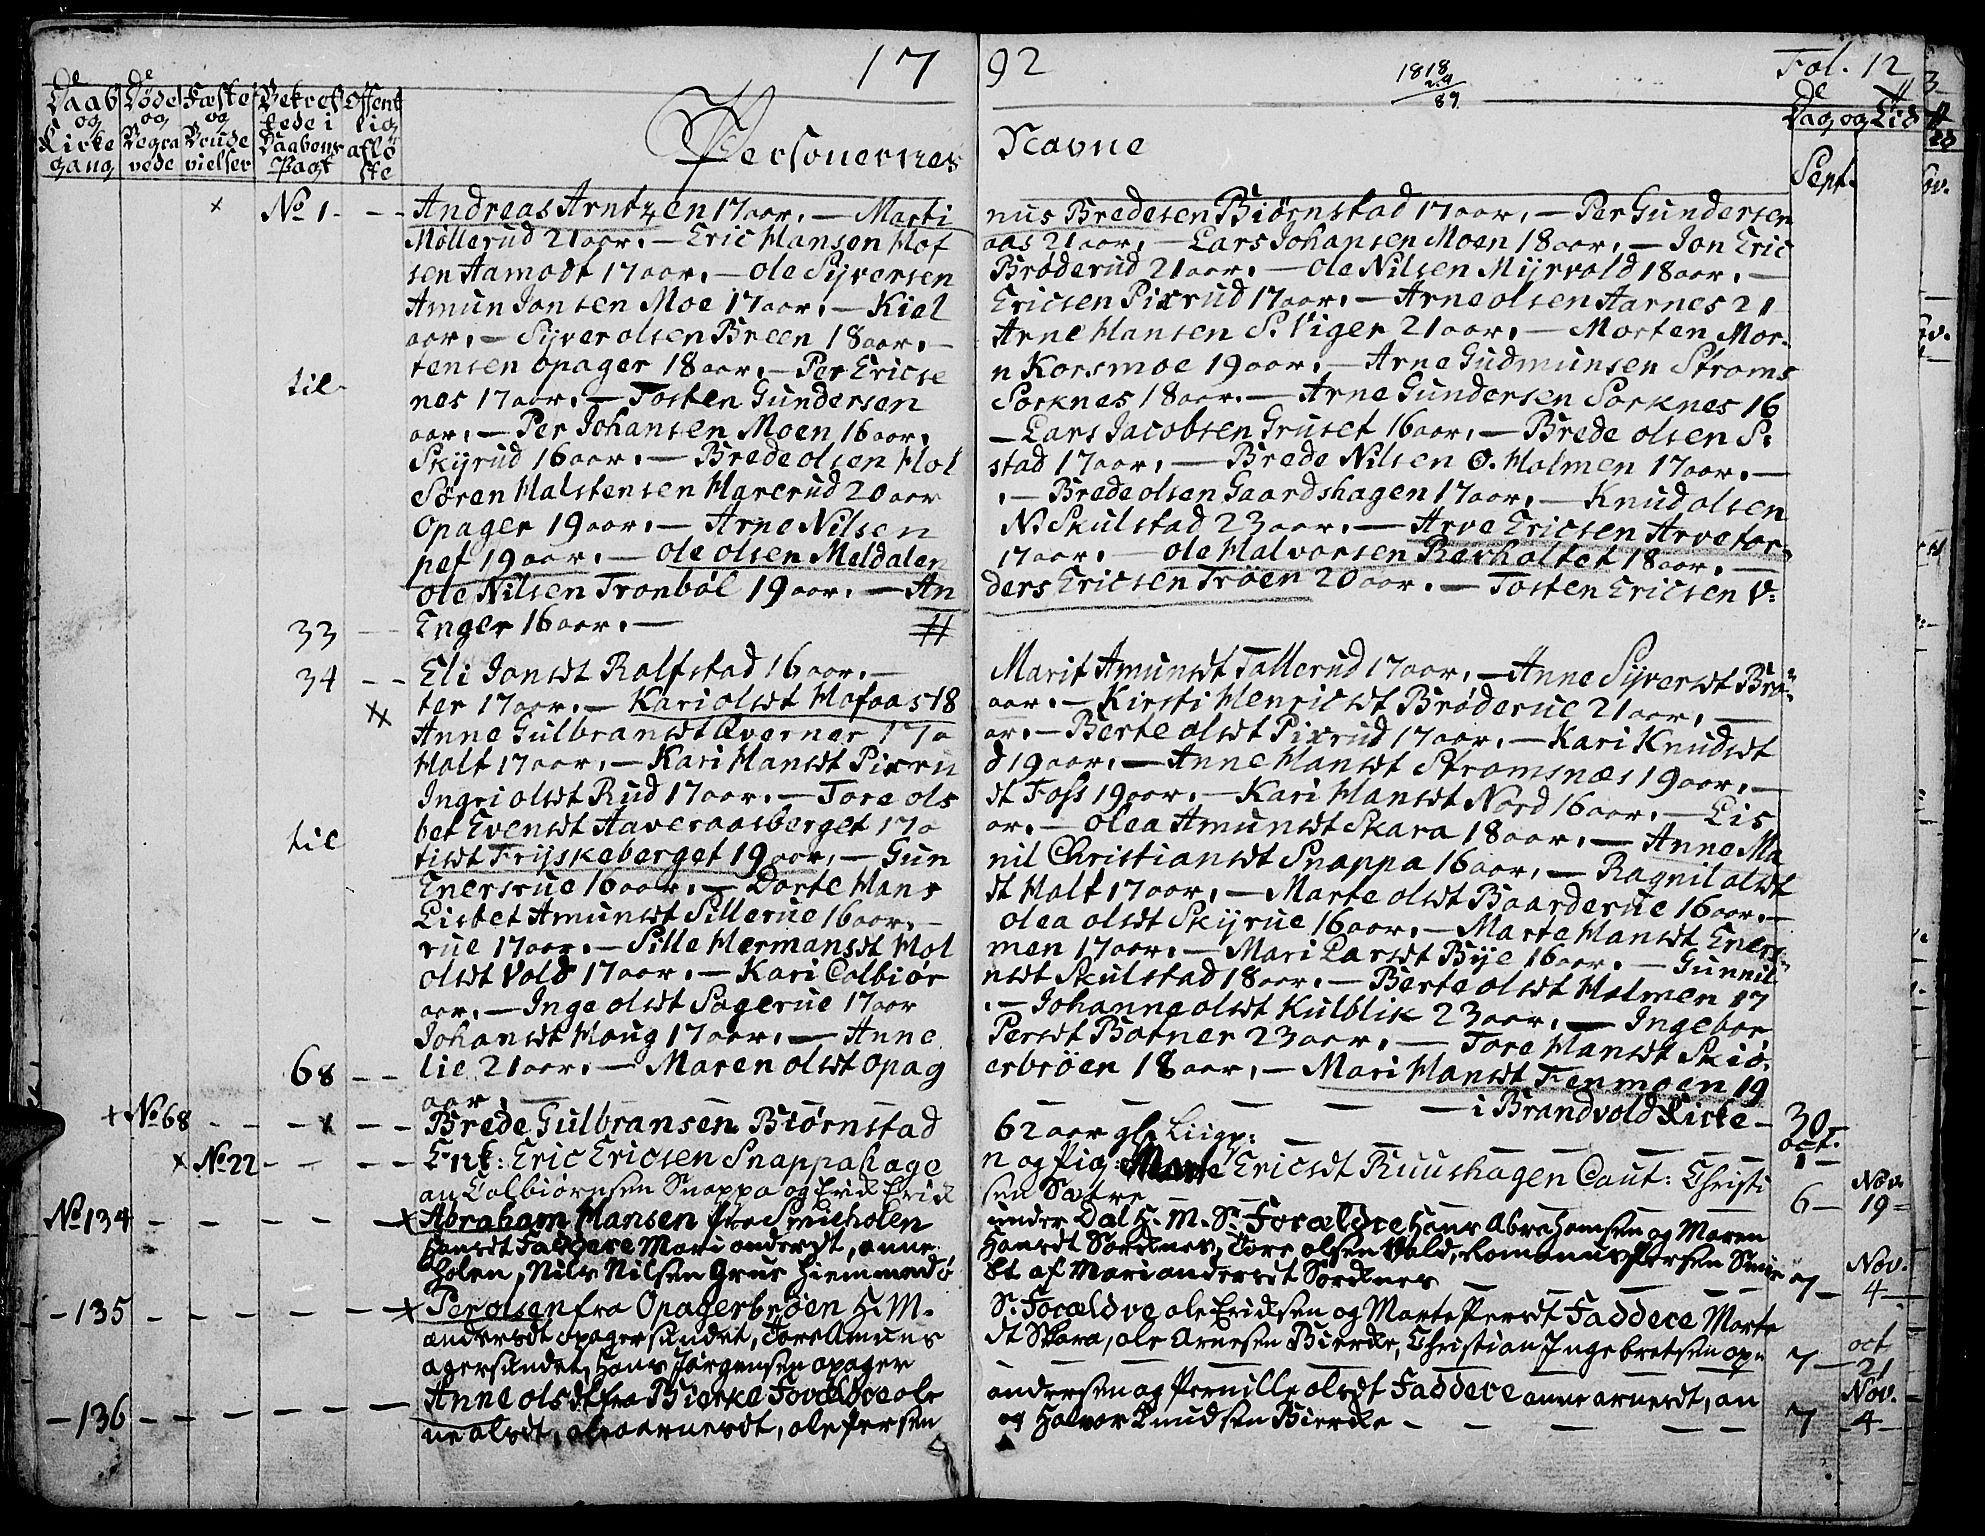 17 92
1818
29
89
Fol. 12
De
Daab og Kirke gang
De
Døde og Begra vede
Fæste og Brude vielser
Bekref tede i Daabens Pagt
Offent lig aflø ste
Personernes Navne
De
Dag og Tid
Sept.
No 1 - Andreas Arntzen 17 aar. — Marti nus Bredesen Biørnstad 17 aar, — Per Gundersen
Møllerud 21 aar. — Eric Hansen Hof aas 21 aar, — Lars Johansen Moen 18 aar, — Jon Eric
sen Aamodt 17 aar. — Ole Sÿversen Brøderud 21 aar. — Ole Nilsen Mÿrvold 18 aar. —
Amun Jonsen Moe 17 aar. — Kiel Ericsen Pixrud 17 aar. — Arne Olsen Aarnes 21
aar, — Sÿver Olsen Breen 18 aar, — Arne Hansen S. Viger 21 aar, — Morten Mor-
tensen Opager 18 aar, — Per Ericse n Korsmoe 19 aar. — Arne Gudmunsen Stroms
til
nes 17 aar. — Tosten Gundersen Sorknes 18 aar. — Arne Gundersen Sorknes 16
aar, — Per Johansen Moen 16 aar. — Lars Jacobsen Gruset 16 aar, — Brede Olsen S:
Skÿrud 16 aar. — Brede Olsen Hol stad 17 aar, — Brede Nilsen O. Holmen 17 aar. —
Søren Halstensen Harerud 20 aar . — Brede Olsen Gaardshagen 17 aar, — Knud Olsen
Opager 19 aar. — Arne Nilsen N. Skulstad 23 aar. — Arve Ericsen Arvetor-
pet 19 aar. — Ole Olsen Meldalen 17 aar. — Ole Halvorsen Revholtet 18 aar. —
Ole Nilsen Tronbøl 19 aar. — An ders Ericsen Trøen 20 aar. — Tosten Ericsen V:
33 — Enger 16 aar. —
34 - - Eli Jonsdt Rolfstad 16 aar. — Marit Amunsdt Tallerud 17 aar, — Anne Sÿversdt Brø-
ter 17 aar. — Kari Olsdt Hofaas 18 aar. — Kirsti Henricsdt Brøderue 21 aar, —
Anne Gulbransdt Overnes 17 a ar. — Berte Olsdt Pixrud 17 aar. — Kari Knudsdt
Holt 17 aar, — Kari Hansdt Pixru d 19 aar. — Anne Hansdt Stromsnæs 19 aar. —
Ingri Olsdt Rud 17 aar. — Tore Ols dt Foss 19 aar. — Kari Hansdt Nord 16 aar. — Lis
bet Evensdt Aaveraasberget 17 a ar. — Olea Amunsdt Skara 18 aar. — Anne Ma
til
tisdt Frÿskeberget 19 aar, — Gun nil Christiansdt Snappa 16 aar, — Ragnil Olsdt
Enersrue 16 aar. — Dorte Hans dt Holt 17 aar, — Marte Olsdt Baarderue 16 aar. —
Lisbet Amunsdt Sillerue 16 aar. — Olea Olsdt Skÿrue 16 aar. — Marte Hansdt Eners-
rue 17 aar. — Sille Hermansdt Hol men 17 aar. — Mari Larsdt Bÿe 16 aar. — Gunnil
Olsdt Vold 17 aar. — Kari Colbiør nsdt Skulstad 18 aar. — Berte Olsdt Holmen 17
aar. — Inge Olsdt Sagerue 17 aar . — Johanne Olsdt Kulblik 23 aar. — Ingebor
Johansdt Haug 17 aar. — Anne Persdt Botner 23 aar. — Tore Hansdt Skiø-
68 - - lie 21 aar. — Maren Olsdt Opag erbrøen 18 aar, — Mari Hansdt Tenmoen 19
aar — i Brandvold Kirke — 30
No 68 - - Brede Gulbransen Biørnstad 62 aar gl. Liigp:
Oct.
No 22 - - Enk: Eric Ericsen Snappahage n og Pig: Marte Ericsdt Ruushagen Caut: Christi 1 —
an Colbiørnsen Snappa og Erik Erik sen Sætre
No 134 - Abraham Hansen fra Smieholen under Dal H. M. S: Forældre Hans Abrahamsen og Maren 6 — Nov. 19
Hansdt Faddere Mari Andersdt, Anne Hansdt Sorknes, Tore Olsen Vold, Romanus Persen Smie
holen, Nils Nilsen Grue hiemmedø bt af Mari Andersdt Sorknes
- 135 - Per Olsen fra Opagerbrøen H. M. S: Forældre Ole Eriksen og Marte Persdt Faddere Marte 7 — Nov. 4
Andersdt Opagersundet, Tore Amuns dt Skara, Ole Arnesen Bierke, Christian Ingebretsen Op
agersundet, Hans Jørgensen Opager 7 — Oct 21
- 136 - Anne Olsdt fra Bierke Forældre Ole Andersen og Pernille Olsdt Faddere Anne Arnesdt, An 7 Nov. 4
ne Olsdt, Ole Aarnesdt, Ole Persen og Halvor Knudsen Bierke